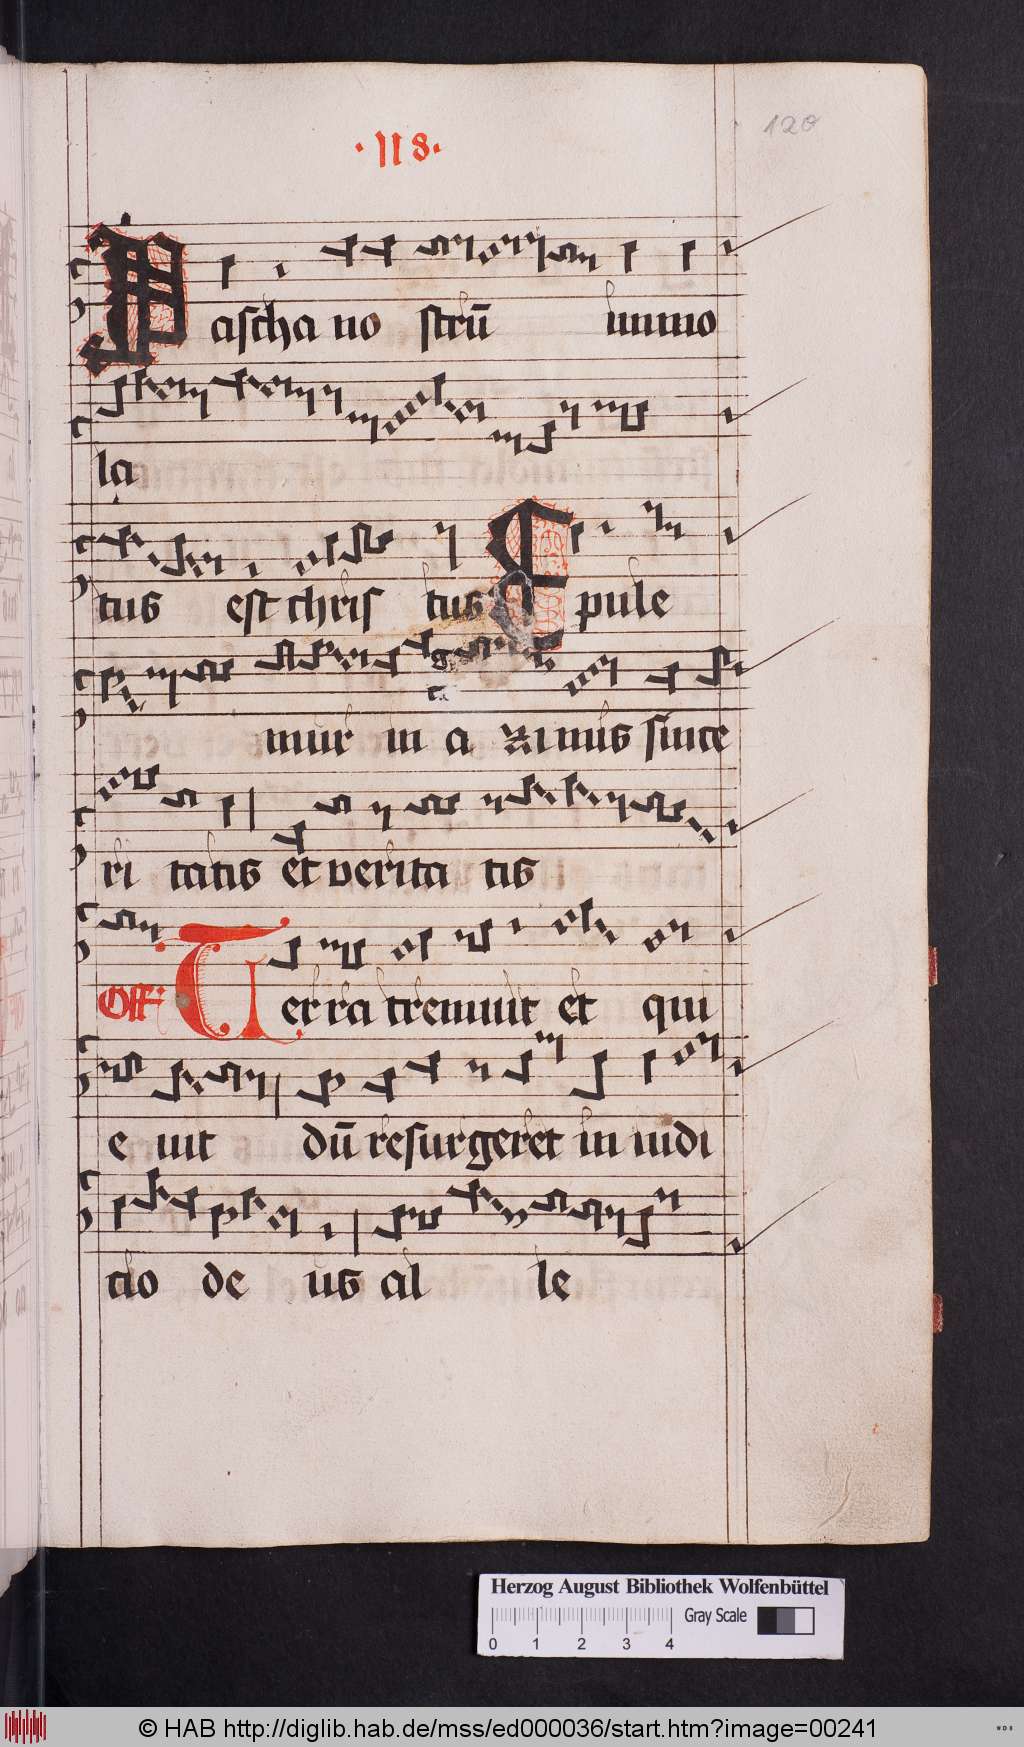 ·118·
120
Pascha no strū immo
la
tus est chris tus Epule
mur in a zimis since
ri tatis et verita tis
Off: Terra tremuit et qui
e uit dū resurgeret in iudi
cio de us al le
Herzog August Bibliothek Wolfenbüttel
Gray Scale
0 1 2 3 4
© HAB http://diglib.hab.de/mss/ed000036/start.htm?image=00241